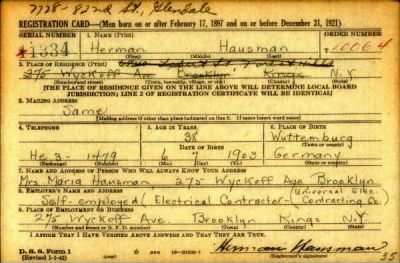 7728-82nd St., Glendale
REGISTRATION CARD—(Men born on or after February 17, 1897 and on or before December 31, 1921)
SERIAL NUMBER 1. NAME (Print) ORDER NUMBER
1334 Herman Hausman 10064
(First) (Middle) (Last)
2. PLACE OF RESIDENCE (Print) Forest Hills
275 Wyckoff Ave Brooklyn Kings N.Y.
(Number and street) (Town, township, village, or city) (County) (State)
[THE PLACE OF RESIDENCE GIVEN ON THE LINE ABOVE WILL DETERMINE LOCAL BOARD
JURISDICTION; LINE 2 OF REGISTRATION CERTIFICATE WILL BE IDENTICAL]
3. MAILING ADDRESS
Same
[Mailing address if other than place indicated on line 2. If same insert word same]
4. TELEPHONE 5. AGE IN YEARS 6. PLACE OF BIRTH
38 Wuttemburg
DATE OF BIRTH (Town or county)
He 3-1479 6 7 1903 Germany
(Exchange) (Number) (Mo.) (Day) (Yr.) (State or country)
7. NAME AND ADDRESS OF PERSON WHO WILL ALWAYS KNOW YOUR ADDRESS
Mrs Maria Hausman 275 Wyckoff Ave Brooklyn
8. EMPLOYER'S NAME AND ADDRESS Universal Elec.
Self-employed (Electrical Contractor- Contracting Co.)
9. PLACE OF EMPLOYMENT OR BUSINESS
275 Wyckoff Ave. Brooklyn Kings N.Y.
(Number and street or R. F. D. number) (Town) (County) (State)
I AFFIRM THAT I HAVE VERIFIED ABOVE ANSWERS AND THAT THEY ARE TRUE.
D. S. S. Form 1
(Revised 1-1-42) Herman Hausman
(Registrant's signature) 35